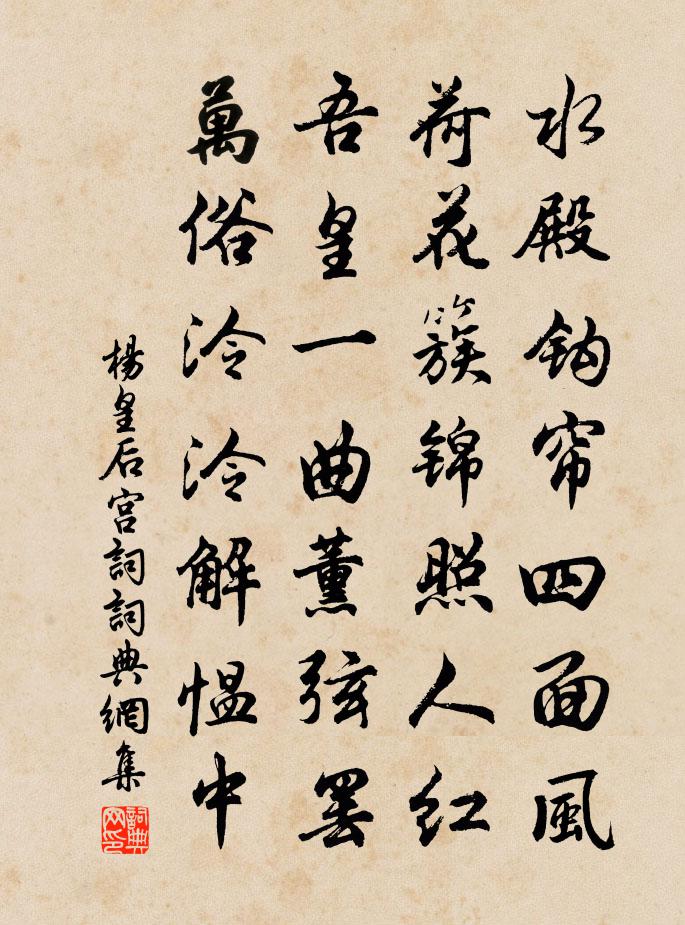 水殿鈎帘四面風
荷花簇錦照人紅
吾皇一曲薰弦罢
萬俗泠泠解愠中
楊皇后宫詞詞典網集
詞典网印